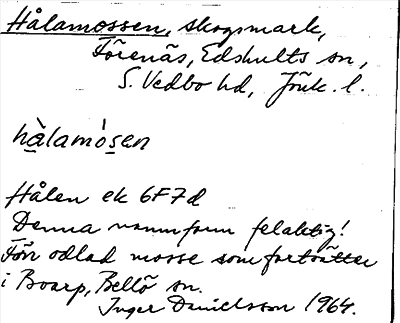 Hålamossen, skogsmark,
Förenäs, Edshults sn,
S. Vedbo hd, Jönk. l.
hàlamòsen
Hålen ek 6F7d
Denna namnform felaktig!
Förr odlad mosse som fortsätter
i Boarp, Bellö sn.
Inger Danielsson 1964.